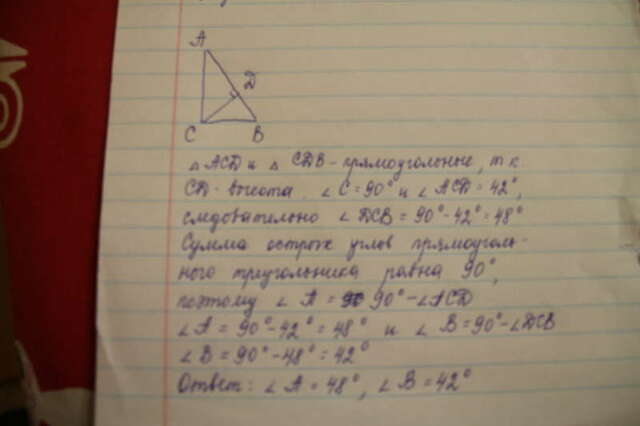 A
D
C B
△ ACD и △ CDB - прямоугольные, т к
CD - высота. ∠ C = 90° и ∠ ACD = 42°,
следовательно ∠ DCB = 90° - 42° = 48°
Сумма острых углов прямоуголь-
ного триугольника равна 90°,
поэтому ∠ A = 90° - ∠ACD
∠ A = 90° - 42° = 48° и ∠ B = 90° - ∠DCB
∠ B = 90° - 48° = 42°
Ответ: ∠ A = 48°, ∠ B = 42°